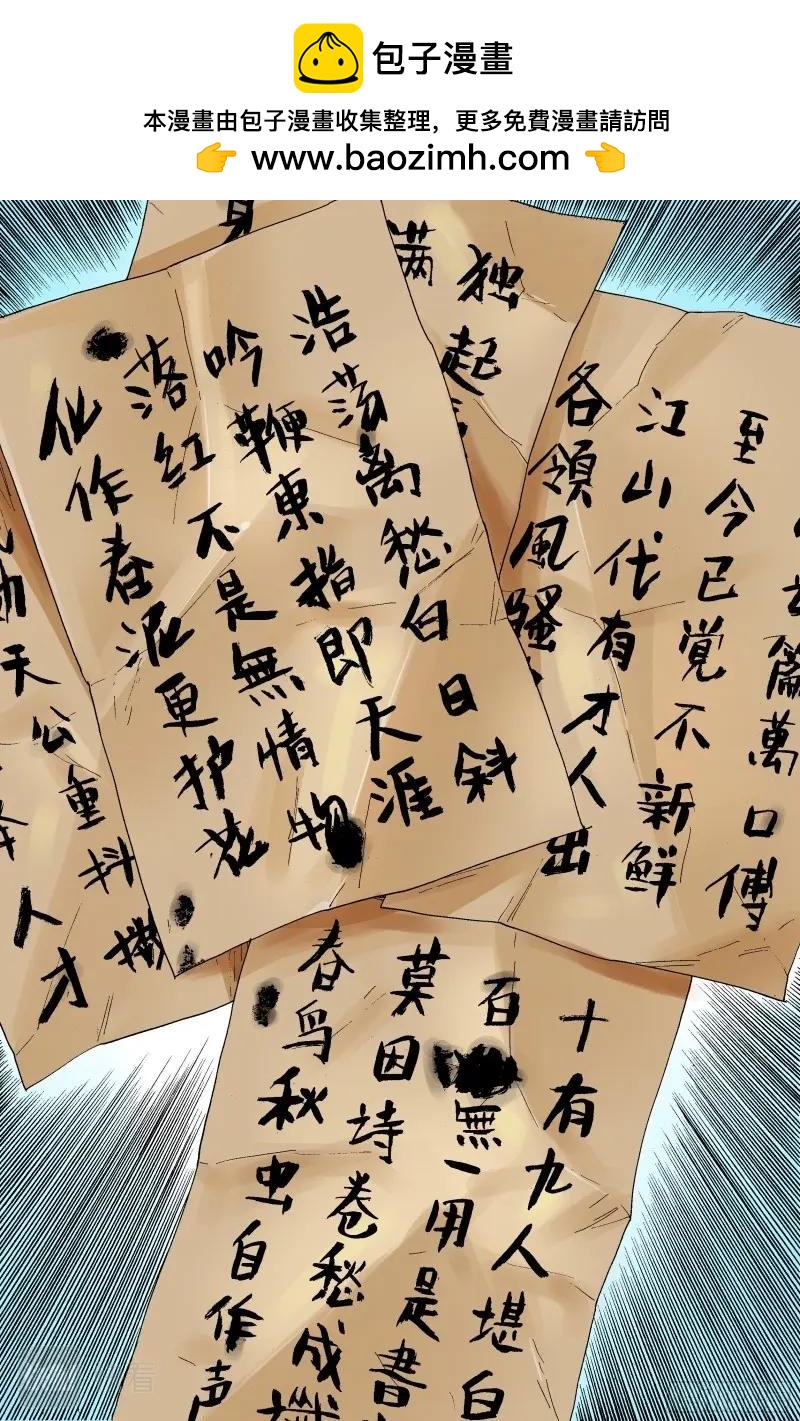 包子漫畫
本漫畫由包子漫畫收集整理，更多免費漫畫請訪問
👉 www.baozimh.com 👈
身
满
独
起
浩荡离愁白日斜
吟鞭東指即天涯
落红不是無情物
化作春泥更护花
篇萬口傳
至今已覚不新鮮
江山代有才人出
各領風騷
天公重抖擞
人才
十有九人堪白
百無一用是書
莫因诗卷愁成
春鸟秋虫自作声